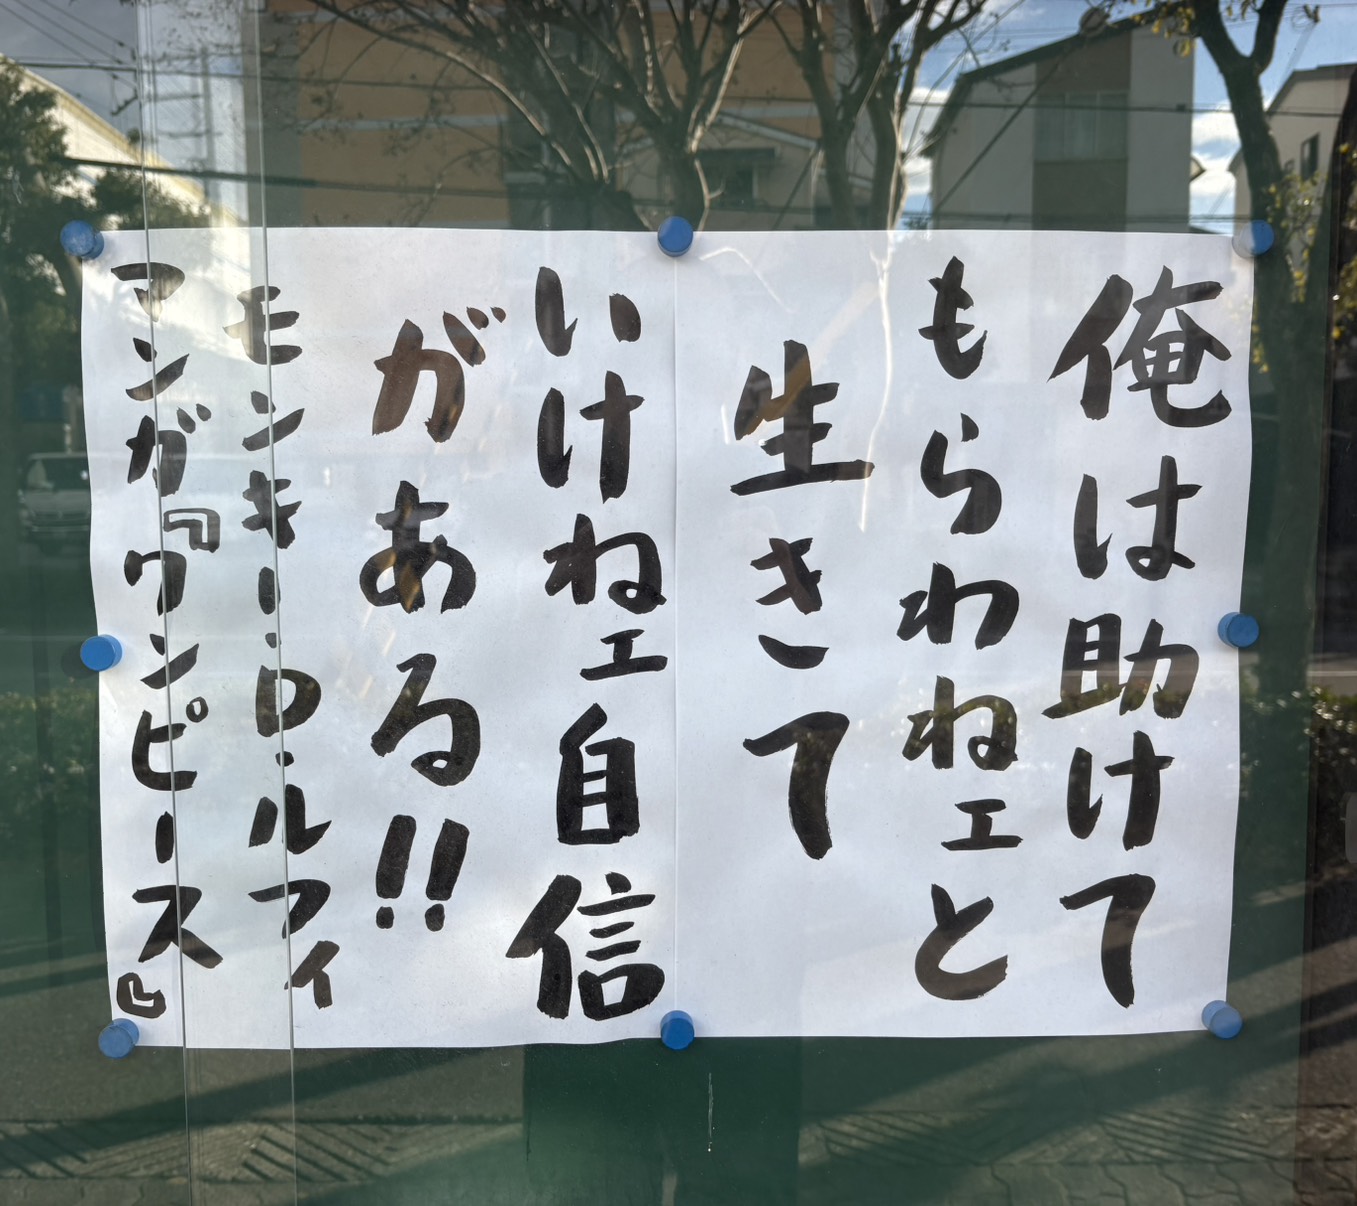 俺は助けて
もらわねェと
生きて
いけねェ自信
がある!!
モンキー・D・ルフィ
マンガ『ワンピース』